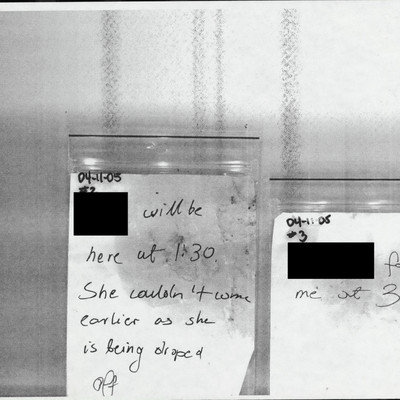 04-11-05
#2
will be
here at 1:30.
She couldn't come
earlier as she
is being droped
off
04-11-05
#3
me at 3